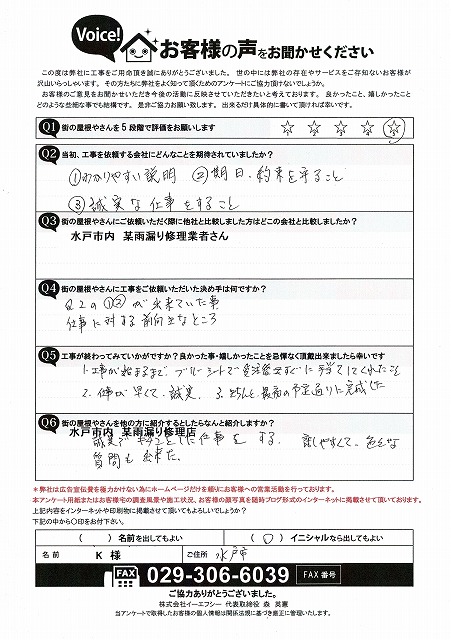 Voice! お客様の声をお聞かせください
この度は弊社に工事をご用命頂き誠にありがとうございました。 世の中には弊社の存在やサービスをご存知ないお客様が
沢山いらっしゃいます。 その方たちに弊社をよく知って頂くためのアンケートにご協力頂けないでしょうか。
お客様のご意見をお聞かせいただき今後の活動に反映させていただきたいと考えております。 良かったこと、嬉しかったこと
どのような些細な事でも結構です。 是非ご協力お願い致します。 出来るだけ具体的に書いて頂ければ幸いです。
Q1 街の屋根やさんを5段階で評価をお願いします
Q2 当初、工事を依頼する会社にどんなことを期待されていましたか?
①わかりやすい説明 ②期日、約束を守ること
③誠実な仕事をすること
Q3 街の屋根やさんにご依頼いただく際に他社と比較しました方はどこの会社と比較しましたか?
水戸市内 某雨漏り修理業者さん
Q4 街の屋根やさんに工事をご依頼いただいた決め手は何ですか?
Q2の①②が出来ていた事
仕事に対する前向きなところ
Q5 工事が終わってみていかがですか? 良かった事・嬉しかったことを忌憚なく頂戴出来ましたら幸いです
1.工事が始まるまで ブルーシートで
2.仕事が早くて、誠実 3. 最初の予定通りに完成した
Q6 街の屋根やさんを他の方に紹介するとしたらなんと紹介しますか?
水戸市内 某雨漏り修理店
誠実で した仕事をする。 話しやすくて、色々な
質問も出来た。
*弊社は広告宣伝費を極力かけない為にホームページだけを頼りにお客様への営業活動を行っております。
本アンケート用紙またはお客様宅の調査風景や施工状況、お客様の顔写真を随時ブログ形式のインターネットに掲載させて頂いております。
上記内容をインターネットや印刷物に掲載させて頂いてもよろしいでしょうか?
下記の中から〇印をお付下さい。
( ) 名前を出してもよい ( 〇 ) イニシャルなら出してもよい
名前 K 様 ご住所 水戸市
FAX 029-306-6039 FAX 番号
ご協力ありがとうございました。
株式会社イーエフシー 代表取締役 森 英憲
当アンケートで取得したお客様の個人情報は関係法規に基づき厳正に管理いたします。